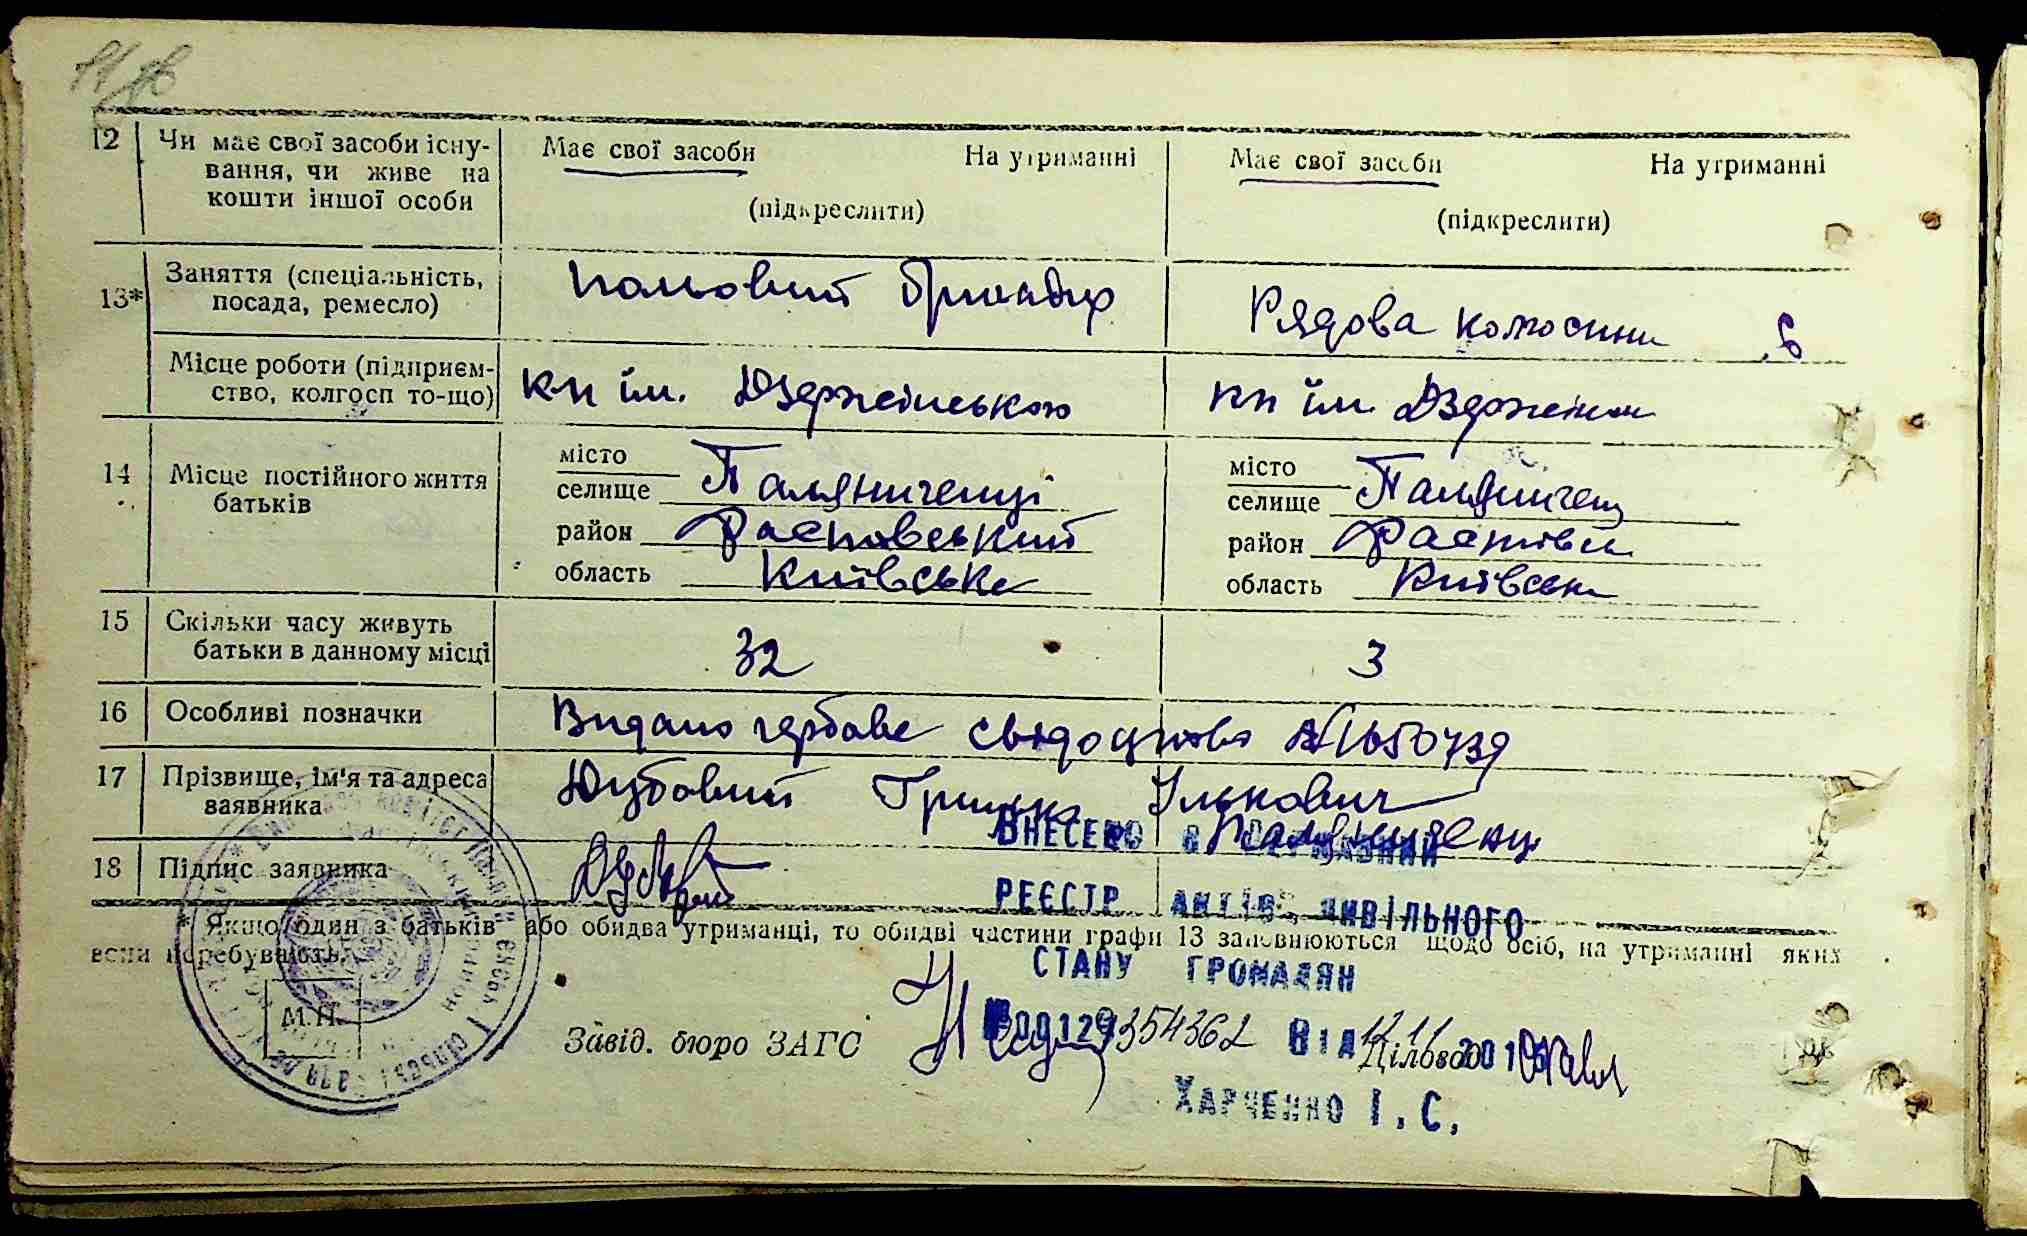 12 Чи має свої засоби існу-
вання, чи живе на
кошти іншої особи
Має свої засоби На утриманні
(підкреслити)
Має свої засоби На утриманні
(підкреслити)
13* Заняття (спеціальність,
посада, ремесло)
Польовий бригадир
Рядова
Місце роботи (підприєм-
ство, колгосп то-що)
кп ім. Дзержінського
кп ім. Дзержінськ
14 Місце постійного життя
батьків
місто
селище Паляниченці
район Фастовський
область Київська
місто
селище Паляниченц
район Фастівськ
область Київськ
15 Скільки часу живуть
батьки в данному місці
32
3
16 Особливі позначки
Видано гербове свідоцтво №
17 Прізвище, ім'я та адреса
заявника
Дубовий Грицько Ількович
Паляниченці
18 Підпис заявника
Дубовий
* Якщо один з батьків або обидва утриманці, то обидві частини графи 13 заповнюються щодо осіб, на утриманні яких
вони перебувають.
ВНЕСЕНО В ДЕРЖАВНИЙ
РЕЄСТР АКТІВ ЦИВІЛЬНОГО
СТАНУ ГРОМАДЯН
М. П.
Завід. бюро ЗАГС
Діловод
№00129354362 ВІД 12.11
ХАРЧЕНКО І.С.